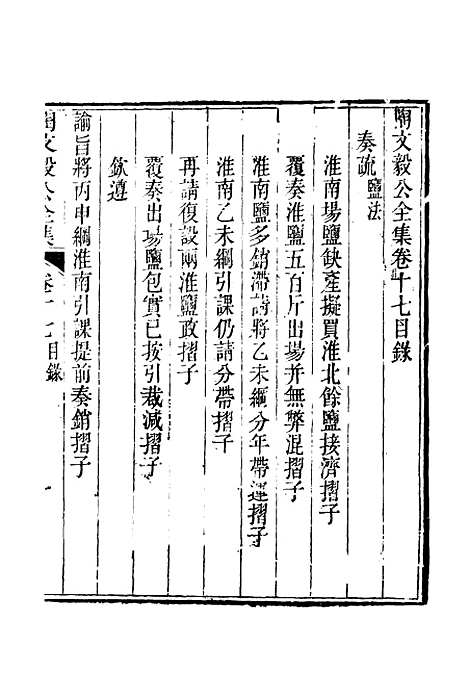 陶文毅公全集卷十七目錄
奏疏 鹽法
淮南場鹽缺產擬買淮北餘鹽接濟摺子
覆奏淮鹽五百斤出場并無弊混摺子
淮南鹽多銷滯請將乙未綱分年帶運摺子
淮南乙未綱引課仍請分帶摺子
再請復設兩淮鹽政摺子
覆奏出場鹽包實已按引裁減摺子
欽遵
諭旨將丙申綱淮南引課提前奏銷摺子
陶文毅公全集 卷十七目錄 一